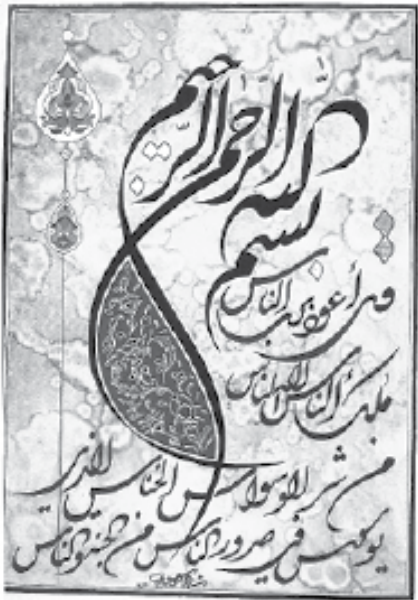 بسم الله الرحمن الرحيم
قل أعوذ برب الناس
ملك الناس اله الناس
من شر الوسواس الخناس الذي
يوسوس في صدور الناس من الجنة والناس